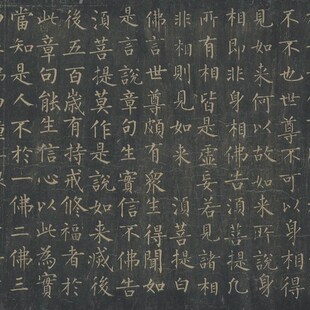 不不也世尊不可以身相得
見如来何以故如来所說身
相即非身相佛告湏菩提凡
所有相皆是虛妄若見諸相
非相則見如来 湏菩提白
佛言世尊頗有衆生得聞如
是言說章句生實信不佛告
湏菩提莫作是說如来滅後
後五百歲有持戒修福者於
此章句能生信心以此為實
當知是人不於一佛二佛三